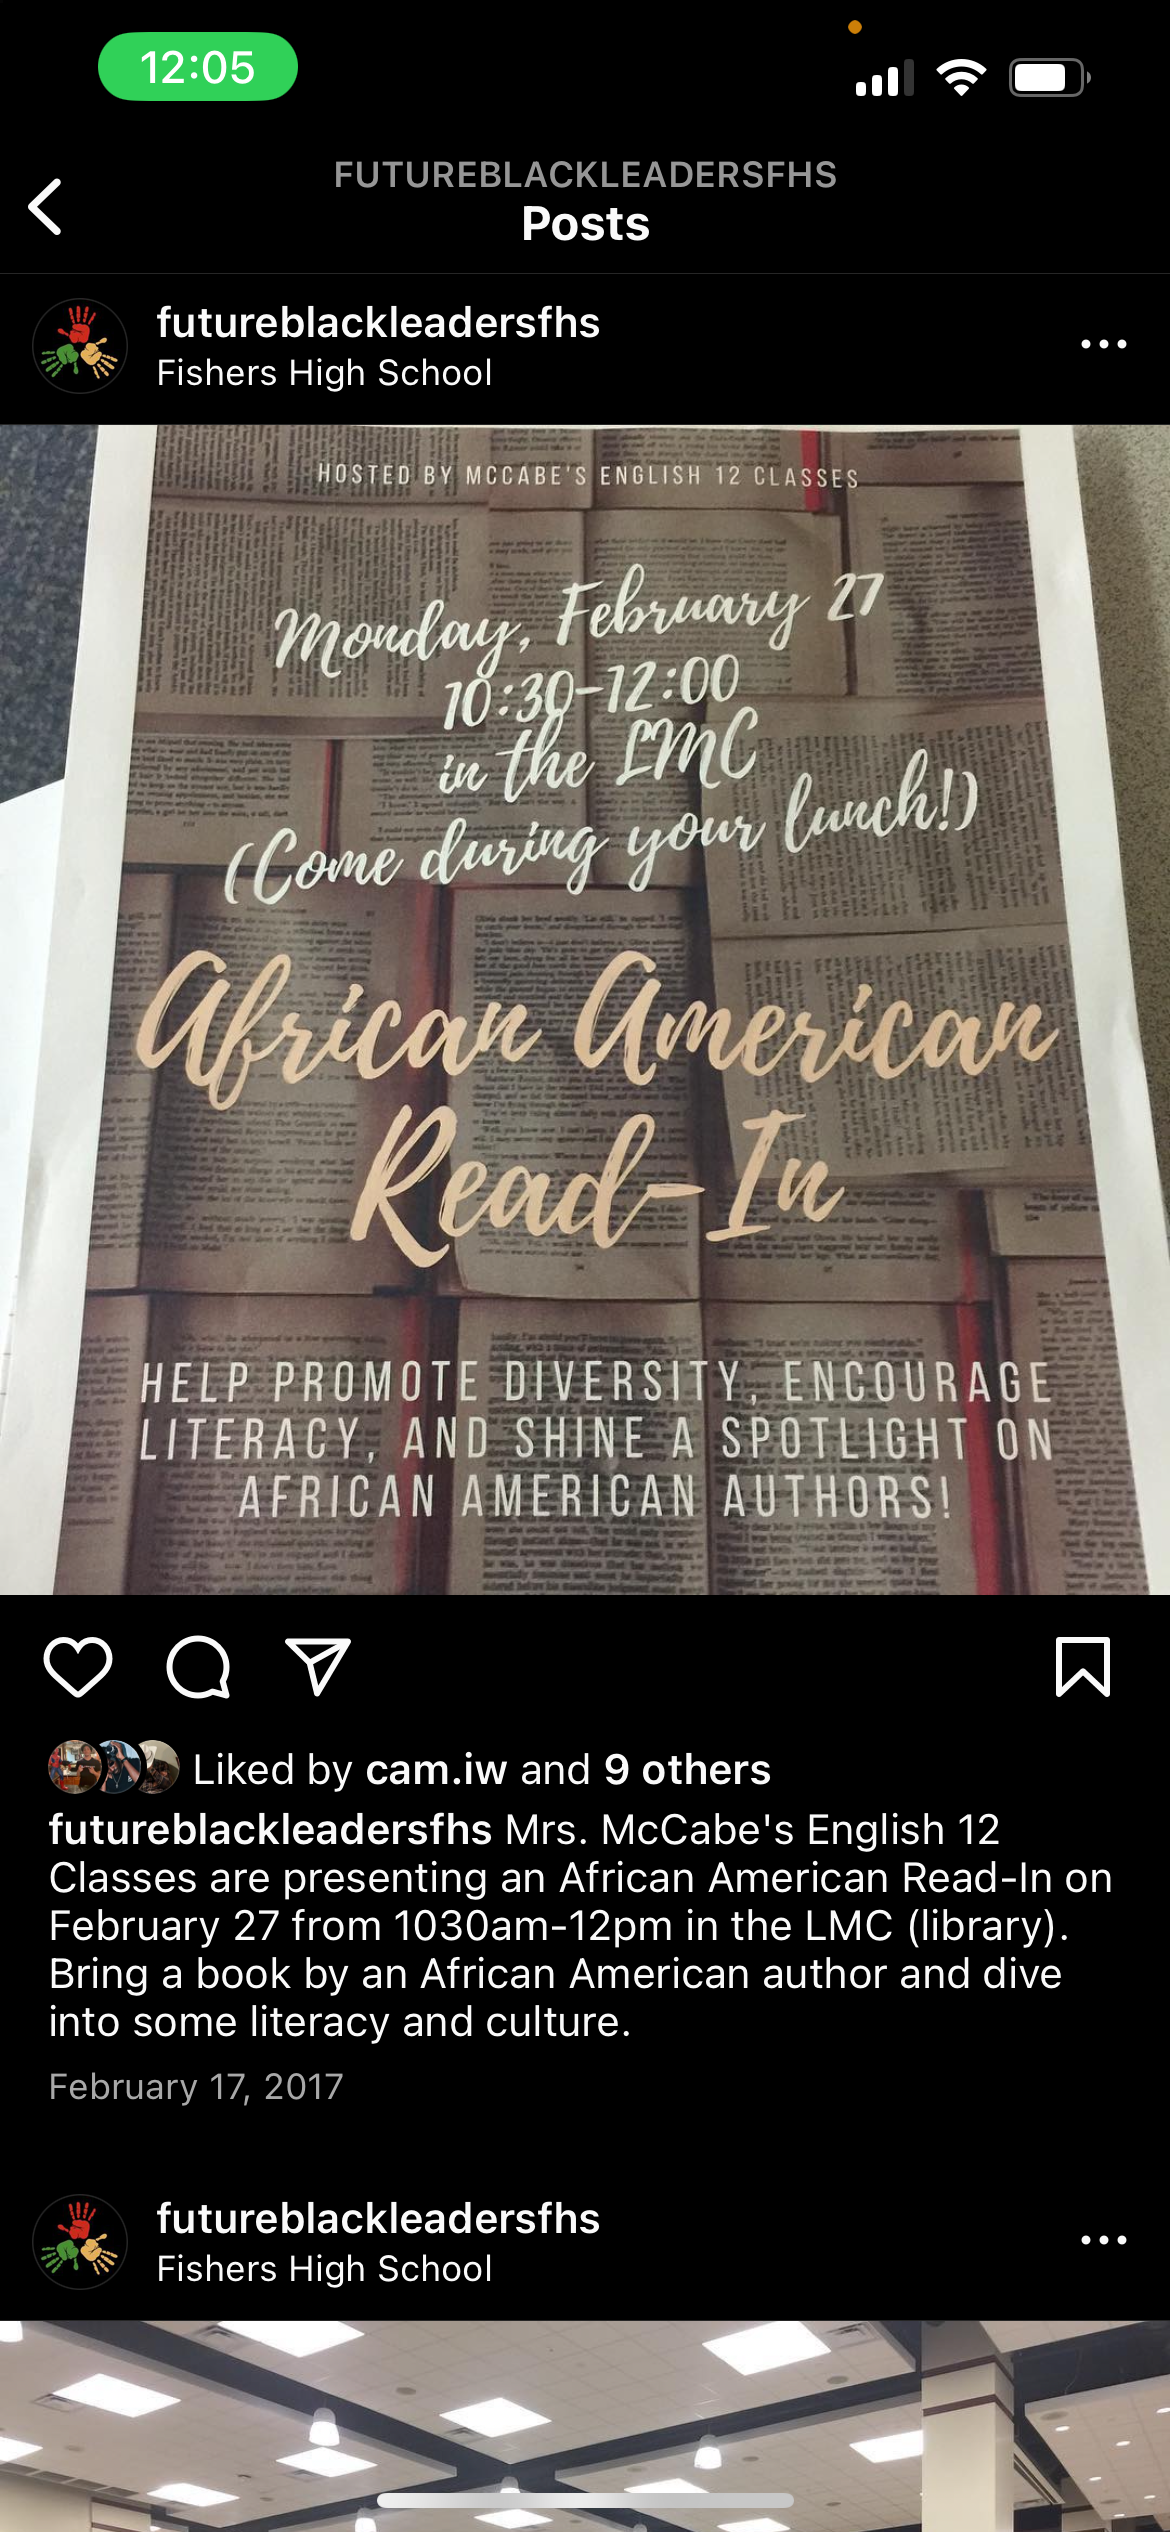 12:05
FUTUREBLACKLEADERSFHS
Posts
futureblackleadersfhs
Fishers High School
HOSTED BY MCCABE'S ENGLISH 12 CLASSES
Monday, February 27
10:30-12:00
in the LMC
(Come during your lunch!)
African American
Read-In
HELP PROMOTE DIVERSITY, ENCOURAGE
LITERACY, AND SHINE A SPOTLIGHT ON
AFRICAN AMERICAN AUTHORS!
Liked by cam.iw and 9 others
futureblackleadersfhs Mrs. McCabe's English 12
Classes are presenting an African American Read-In on
February 27 from 1030am-12pm in the LMC (library).
Bring a book by an African American author and dive
into some literacy and culture.
February 17, 2017
futureblackleadersfhs
Fishers High School